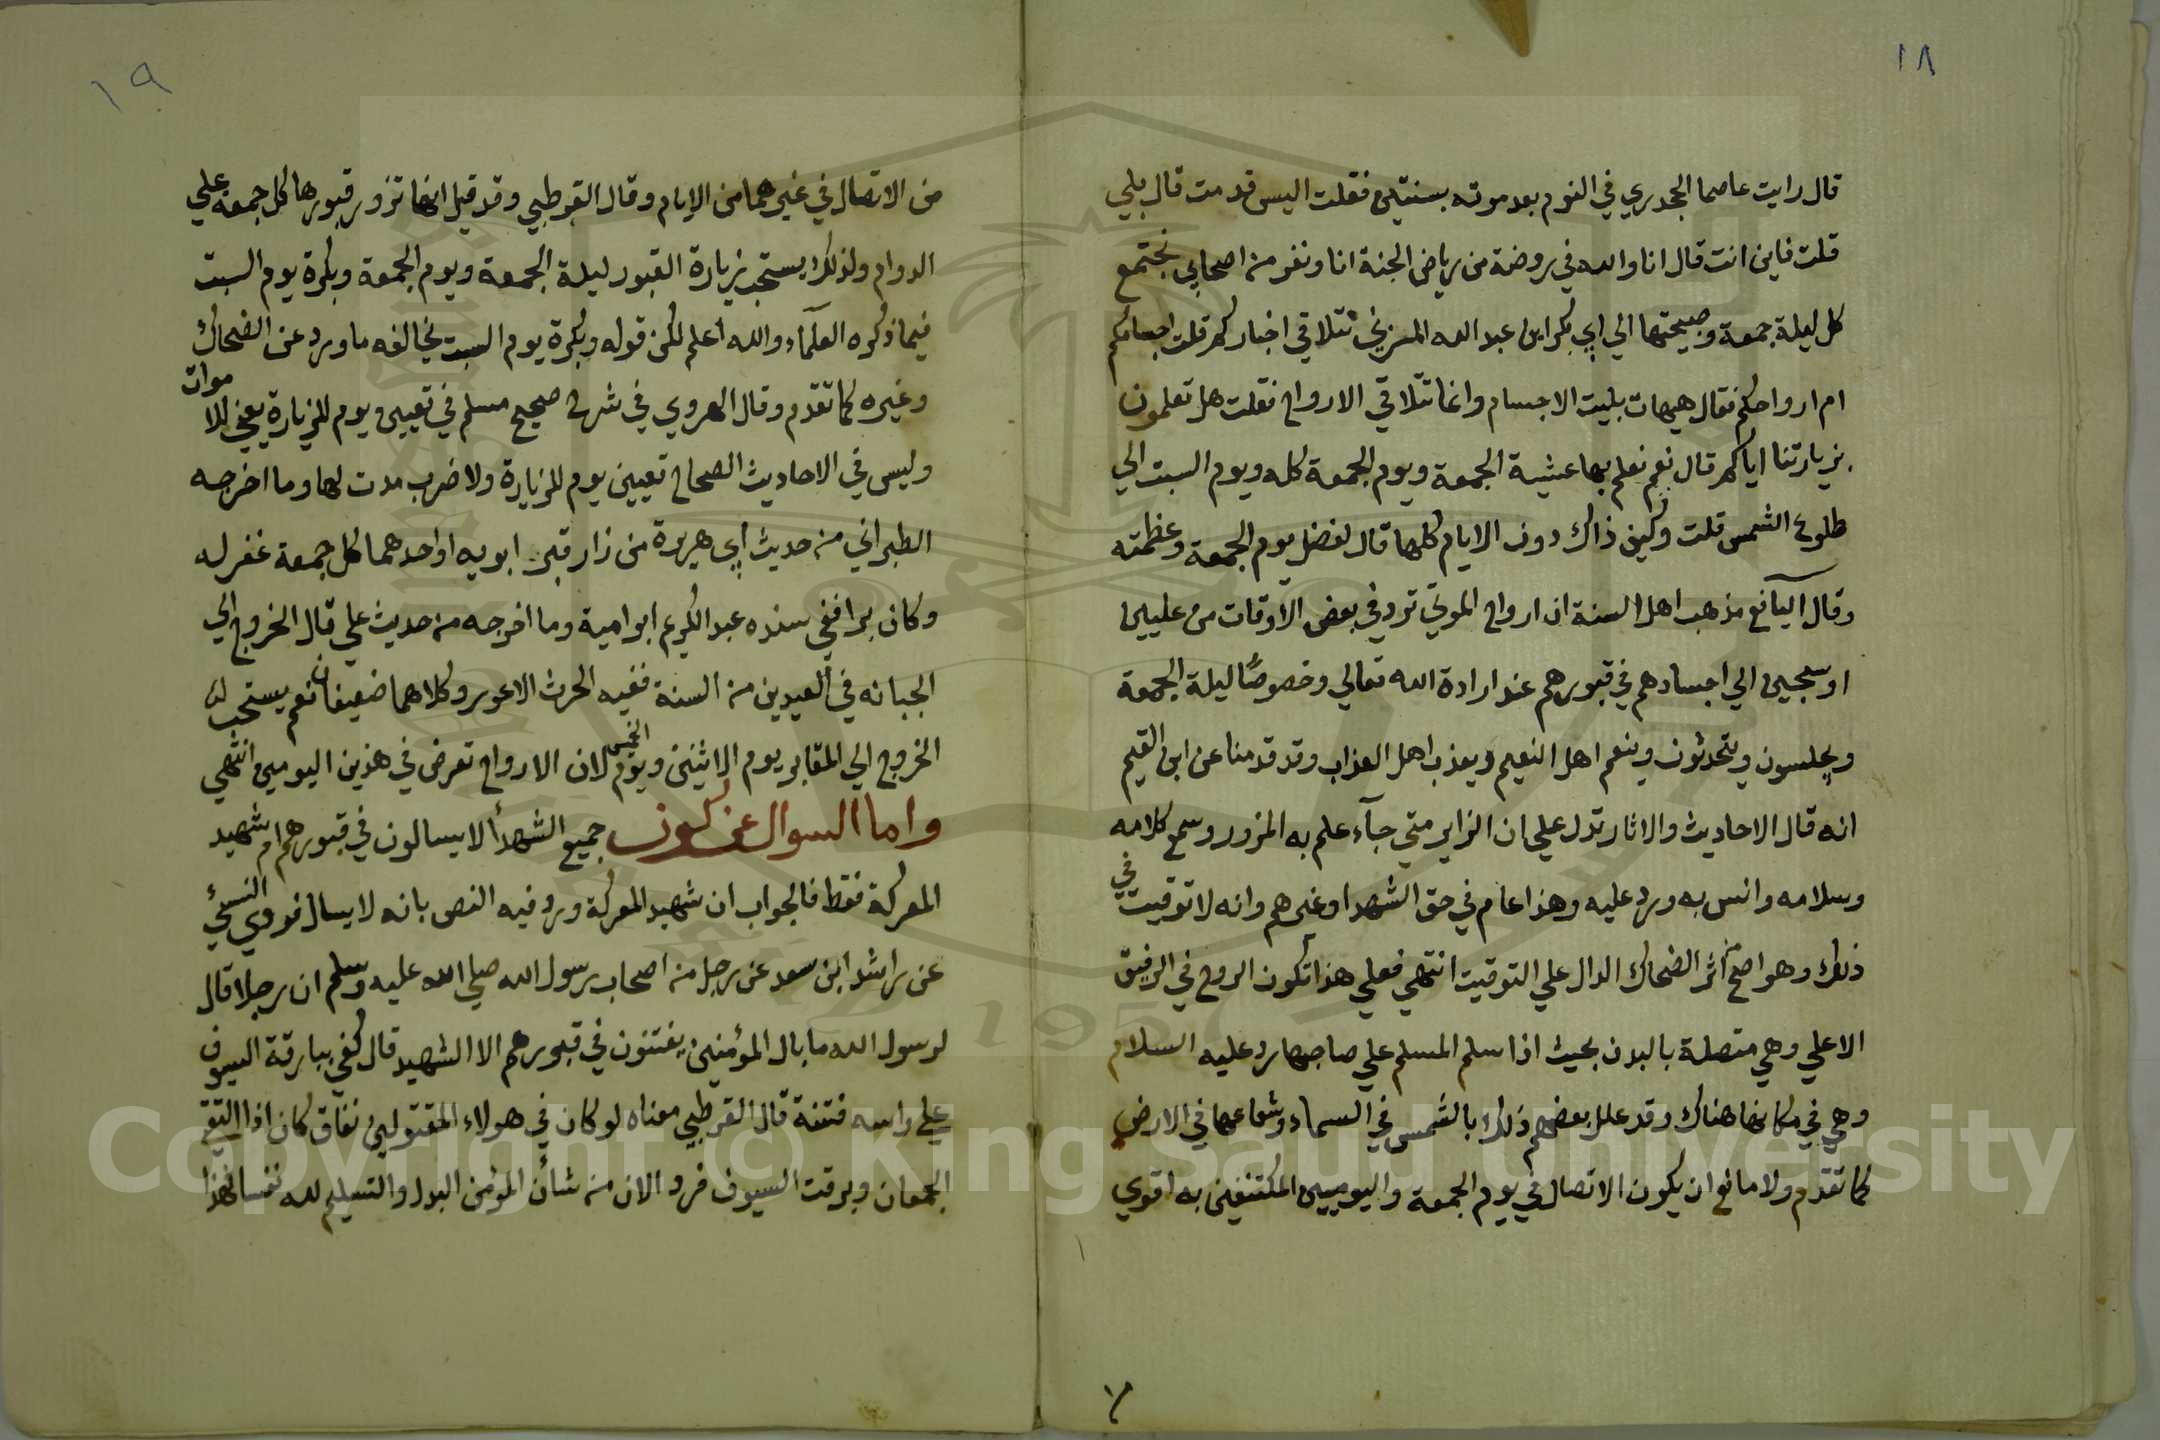 ١٨
قال رايت عاصما الجحدري في النوم بعد موته بسنتين فقلت اليس قد مت قال بلي
قلت فاين انت قال انا والله في روضة من رياض الجنة انا ونفر من اصحابي نجتمع
كل ليلة جمعة وصبيحتها الي ابي بكر ابن عبد الله المزني نتلاقي اخباركم قلت اجسامكم
ام ارواحكم فقال هيهات بليت الاجسام وانما تتلاقي الارواح فقلت هل تعلمون
بزيارتنا اياكم قال نعم نعلم بها عشية الجمعة ويوم الجمعة كله ويوم السبت الي
طلوع الشمس قلت وكيف ذاك دون الايام كلها قال لفضل يوم الجمعة وعظمته
وقال اليافعي مذهب اهل السنة ان ارواح الموتي ترد في بعض الاوقات من عليين
او سجين الي اجسادهم في قبورهم عند ارادة الله تعالي وخصوصا ليلة الجمعة
ويجلسون ويتحدثون وينعم اهل النعيم ويعذب اهل العذاب وقد قدمنا عن ابن القيم
انه قال الاحاديث والاثار تدل علي ان الزاير متي جآء علم به المزور وسمع كلامه
وسلامه وانس به ورد عليه وهذا عام في حق الشهدا وغيرهم وانه لا توقيت في
ذلك وهو اصح من اثر الضحاك الدال علي التوقيت انتهي فعلي هذا تكون الروح في الرفيق
الاعلي وهي متصلة بالبدن بحيث اذا سلم المسلم علي صاحبها رد عليه السلام
وهي في مكانها هناك وقد علل بعضهم ذلك بالشمس في السماء وشعاعها في الارض
كما تقدم ولا مانع ان يكون الاتصال في يوم الجمعة واليومين المكتنفين به اقوي
١٩
من الاتصال في غيرهما من الايام وقال القرطبي وقد قيل انها تزور قبورها كل جمعة علي
الدوام ولذلك يستحب زيارة القبور ليلة الجمعة ويوم الجمعة وبكرة يوم السبت
فيما ذكره العلماء والله اعلم لكن قوله وبكرة يوم السبت يخالفه ما ورد عن الضحاك
وغيره كما تقدم وقال الهروي في شرح صحيح مسلم في تعيين يوم للزيارة يعني للاموات
وليس في الاحاديث الصحاح تعيين يوم للزيارة ولا ضرب مدت لها وما اخرجه
الطبراني من حديث ابي هريرة من زار قبر ابويه او احدهما كل جمعة غفر له
وكان برا ففي سنده عبد الكريم ابو امية وما اخرجه من حديث علي قال الخروج الي
الجبانه في العيدين من السنة ففيه الحرث الاعور وكلاهما ضعيفان نعم يستحب لنا
الخروج الي المقابر يوم الاثنين ويوم الخميس لان الارواح تعرض في هذين اليومين انتهي
واما السوال عن كون جميع الشهدأ لا يسالون في قبورهم ام شهيد
المعركة فقط فالجواب ان شهيد المعركة ورد فيه النص بانه لا يسال فروي النسئي
عن راشد ابن سعد عن رجل من اصحاب رسول الله صلي الله عليه وسلم ان رجلا قال
لرسول الله ما بال المؤمنين يفتنون في قبورهم الا الشهيد قال كفي ببارقة السيوف
علي راسه فتنة قال القرطبي معناه لو كان في هولاء المقتولين نفاق كان اذا التقي
الجمعان وبرقت السيوف فرد الان من شأن المؤمن البدل والتسليم لله نفسا فهذا
Copyright © King Saud University
1957